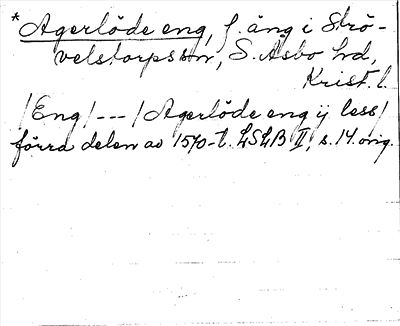 *Agerlöde eng, f. äng i Strö-
velstorpssn, S. Åsbo hd,
Krist. l.
/Eng/---/Agerlöde eng ij less/
förra delen av 1570-t. LSLB II, s. 14. orig.